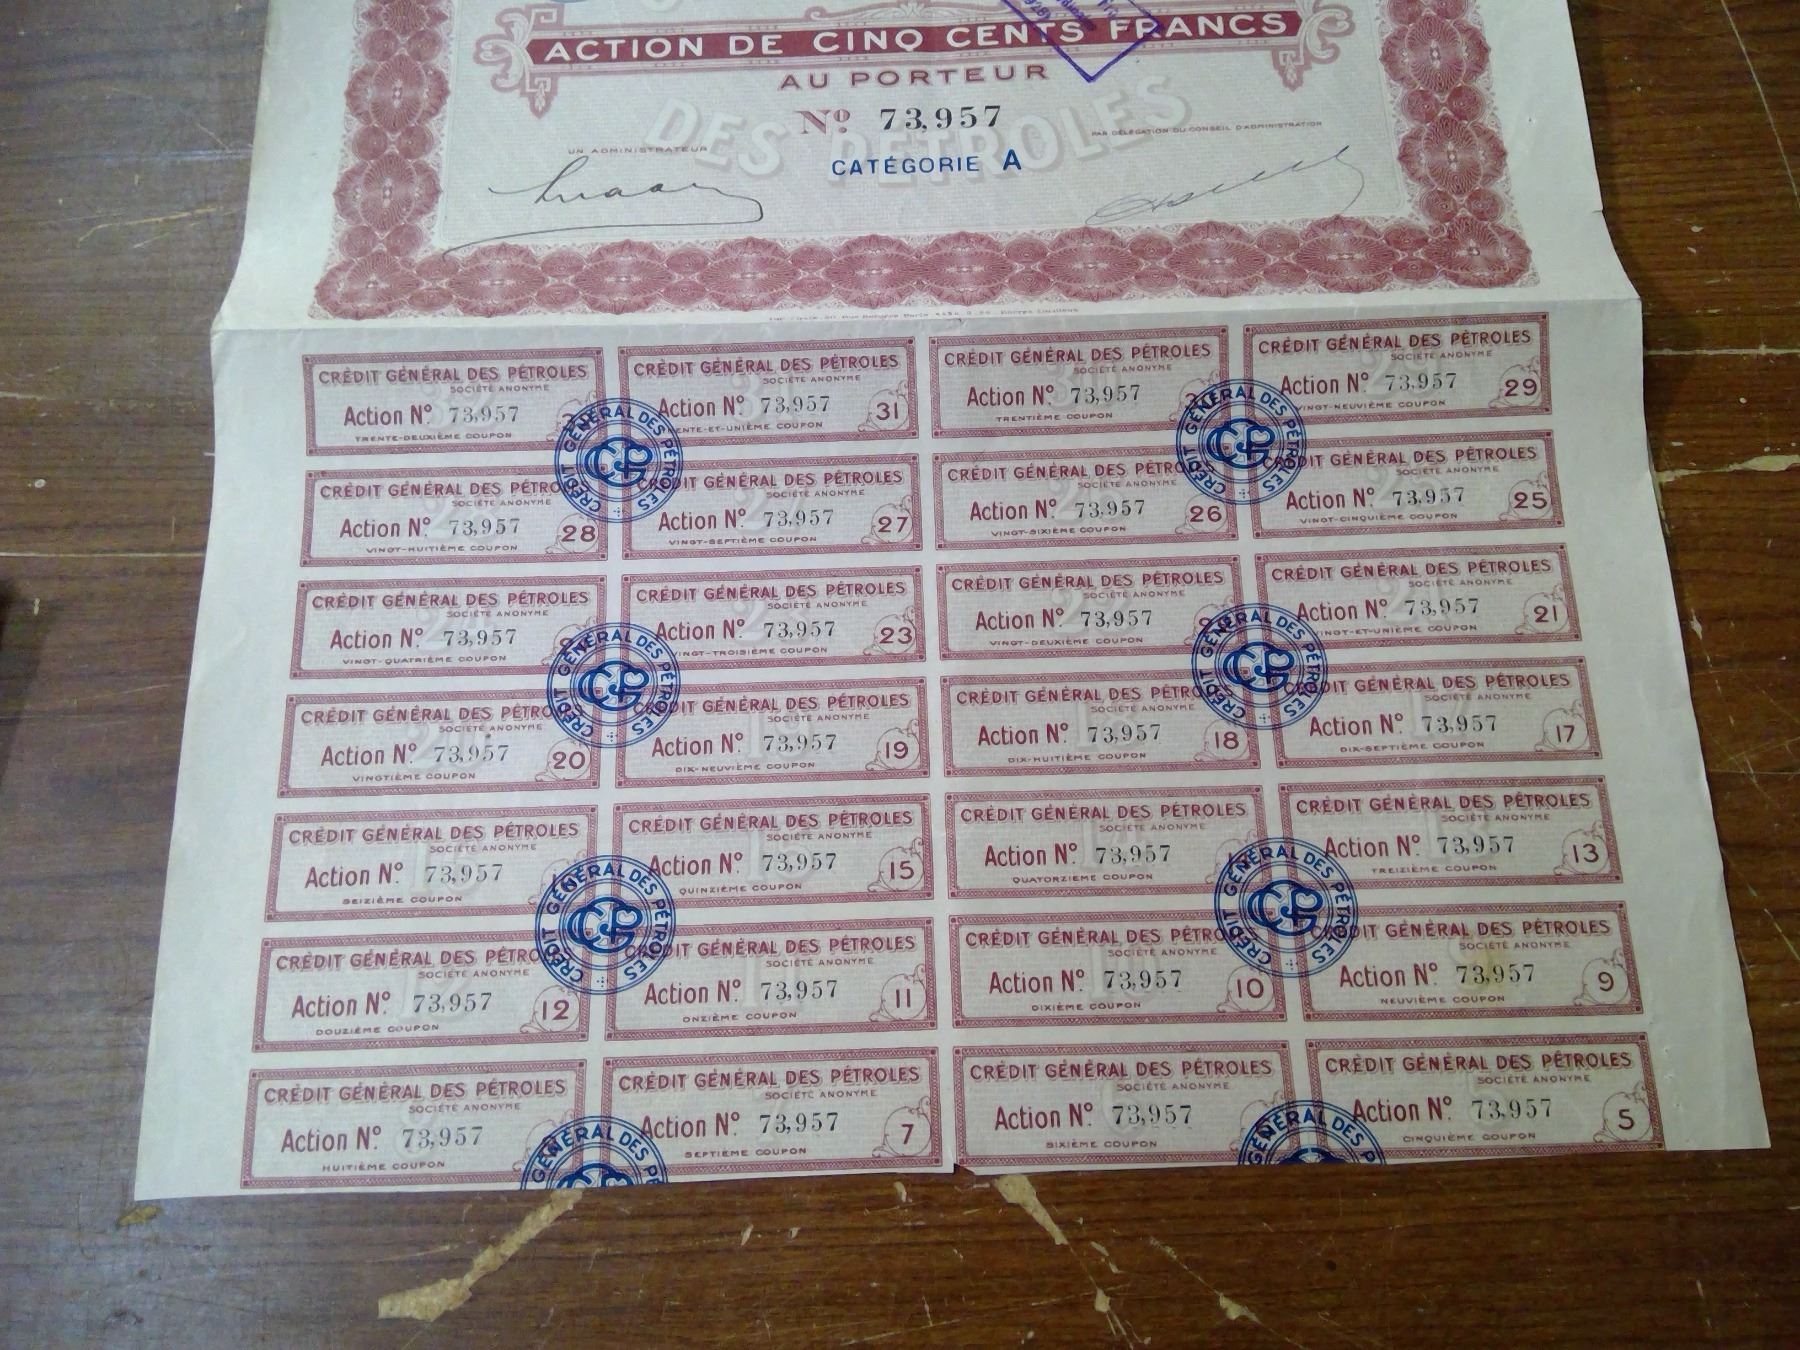 ACTION DE CINQ CENTS FRANCS
AU PORTEUR
DES PÉTROLES
Nº 73,957
PAR DÉLÉGATION DU CONSEIL D'ADMINISTRATION
UN ADMINISTRATEUR
CATÉGORIE A
CRÉDIT GÉNÉRAL DES PÉTROLES
SOCIÉTÉ ANONYME
Action Nº 73,957
TRENTE-DEUXIÈME COUPON
CRÉDIT GÉNÉRAL DES PÉTROLES
SOCIÉTÉ ANONYME
Action Nº 73,957 31
TRENTE-ET-UNIÈME COUPON
CRÉDIT GÉNÉRAL DES PÉTROLES
SOCIÉTÉ ANONYME
Action Nº 73,957
TRENTIÈME COUPON
CRÉDIT GÉNÉRAL DES PÉTROLES
SOCIÉTÉ ANONYME
Action Nº 73,957 29
VINGT-NEUVIÈME COUPON
CRÉDIT GÉNÉRAL DES PÉTROLES
CGP
CRÉDIT GÉNÉRAL DES PÉTROLES
CGP
CRÉDIT GÉNÉRAL DES PÉTROLES
SOCIÉTÉ ANONYME
Action Nº 73,957 28
VINGT-HUITIÈME COUPON
CRÉDIT GÉNÉRAL DES PÉTROLES
SOCIÉTÉ ANONYME
Action Nº 73,957 27
VINGT-SEPTIÈME COUPON
CRÉDIT GÉNÉRAL DES PÉTROLES
SOCIÉTÉ ANONYME
Action Nº 73,957 26
VINGT-SIXIÈME COUPON
CRÉDIT GÉNÉRAL DES PÉTROLES
SOCIÉTÉ ANONYME
Action Nº 73,957 25
VINGT-CINQUIÈME COUPON
CRÉDIT GÉNÉRAL DES PÉTROLES
SOCIÉTÉ ANONYME
Action Nº 73,957
VINGT-QUATRIÈME COUPON
CRÉDIT GÉNÉRAL DES PÉTROLES
SOCIÉTÉ ANONYME
Action Nº 73,957 23
VINGT-TROISIÈME COUPON
CRÉDIT GÉNÉRAL DES PÉTROLES
SOCIÉTÉ ANONYME
Action Nº 73,957
VINGT-DEUXIÈME COUPON
CRÉDIT GÉNÉRAL DES PÉTROLES
SOCIÉTÉ ANONYME
Action Nº 73,957 21
VINGT-ET-UNIÈME COUPON
CRÉDIT GÉNÉRAL DES PÉTROLES
CGP
CRÉDIT GÉNÉRAL DES PÉTROLES
CGP
CRÉDIT GÉNÉRAL DES PÉTROLES
SOCIÉTÉ ANONYME
Action Nº 73,957 20
VINGTIÈME COUPON
CRÉDIT GÉNÉRAL DES PÉTROLES
SOCIÉTÉ ANONYME
Action Nº 73,957 19
DIX-NEUVIÈME COUPON
CRÉDIT GÉNÉRAL DES PÉTROLES
SOCIÉTÉ ANONYME
Action Nº 73,957 18
DIX-HUITIÈME COUPON
CRÉDIT GÉNÉRAL DES PÉTROLES
SOCIÉTÉ ANONYME
Action Nº 73,957 17
DIX-SEPTIÈME COUPON
CRÉDIT GÉNÉRAL DES PÉTROLES
SOCIÉTÉ ANONYME
Action Nº 73,957
SEIZIÈME COUPON
CRÉDIT GÉNÉRAL DES PÉTROLES
SOCIÉTÉ ANONYME
Action Nº 73,957 15
QUINZIÈME COUPON
CRÉDIT GÉNÉRAL DES PÉTROLES
SOCIÉTÉ ANONYME
Action Nº 73,957
QUATORZIÈME COUPON
CRÉDIT GÉNÉRAL DES PÉTROLES
SOCIÉTÉ ANONYME
Action Nº 73,957 13
TREIZIÈME COUPON
CRÉDIT GÉNÉRAL DES PÉTROLES
CGP
CRÉDIT GÉNÉRAL DES PÉTROLES
CGP
CRÉDIT GÉNÉRAL DES PÉTROLES
SOCIÉTÉ ANONYME
Action Nº 73,957 12
DOUZIÈME COUPON
CRÉDIT GÉNÉRAL DES PÉTROLES
SOCIÉTÉ ANONYME
Action Nº 73,957 11
ONZIÈME COUPON
CRÉDIT GÉNÉRAL DES PÉTROLES
SOCIÉTÉ ANONYME
Action Nº 73,957 10
DIXIÈME COUPON
CRÉDIT GÉNÉRAL DES PÉTROLES
SOCIÉTÉ ANONYME
Action Nº 73,957 9
NEUVIÈME COUPON
CRÉDIT GÉNÉRAL DES PÉTROLES
SOCIÉTÉ ANONYME
Action Nº 73,957
HUITIÈME COUPON
CRÉDIT GÉNÉRAL DES PÉTROLES
SOCIÉTÉ ANONYME
Action Nº 73,957 7
SEPTIÈME COUPON
CRÉDIT GÉNÉRAL DES PÉTROLES
SOCIÉTÉ ANONYME
Action Nº 73,957
SIXIÈME COUPON
CRÉDIT GÉNÉRAL DES PÉTROLES
SOCIÉTÉ ANONYME
Action Nº 73,957 5
CINQUIÈME COUPON
GÉNÉRAL DES PÉ
GÉNÉRAL DES